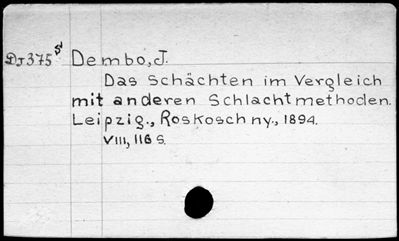 DJ375 S1 Dembo, J.
Das Schächten im Vergleich
mit anderen Schlachtmethoden.
Leipzig., Roskoschny., 1894.
VIII, 116 S.